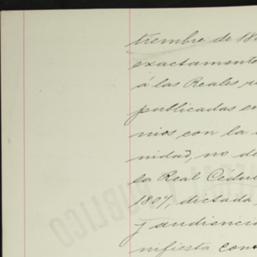 tiembre de 18
exactamente
á las Reales
publicadas en
mios con la
nidad, no
la Real Cedul
1807, dictada
y audiencia
nifiesta con
PUBLICO